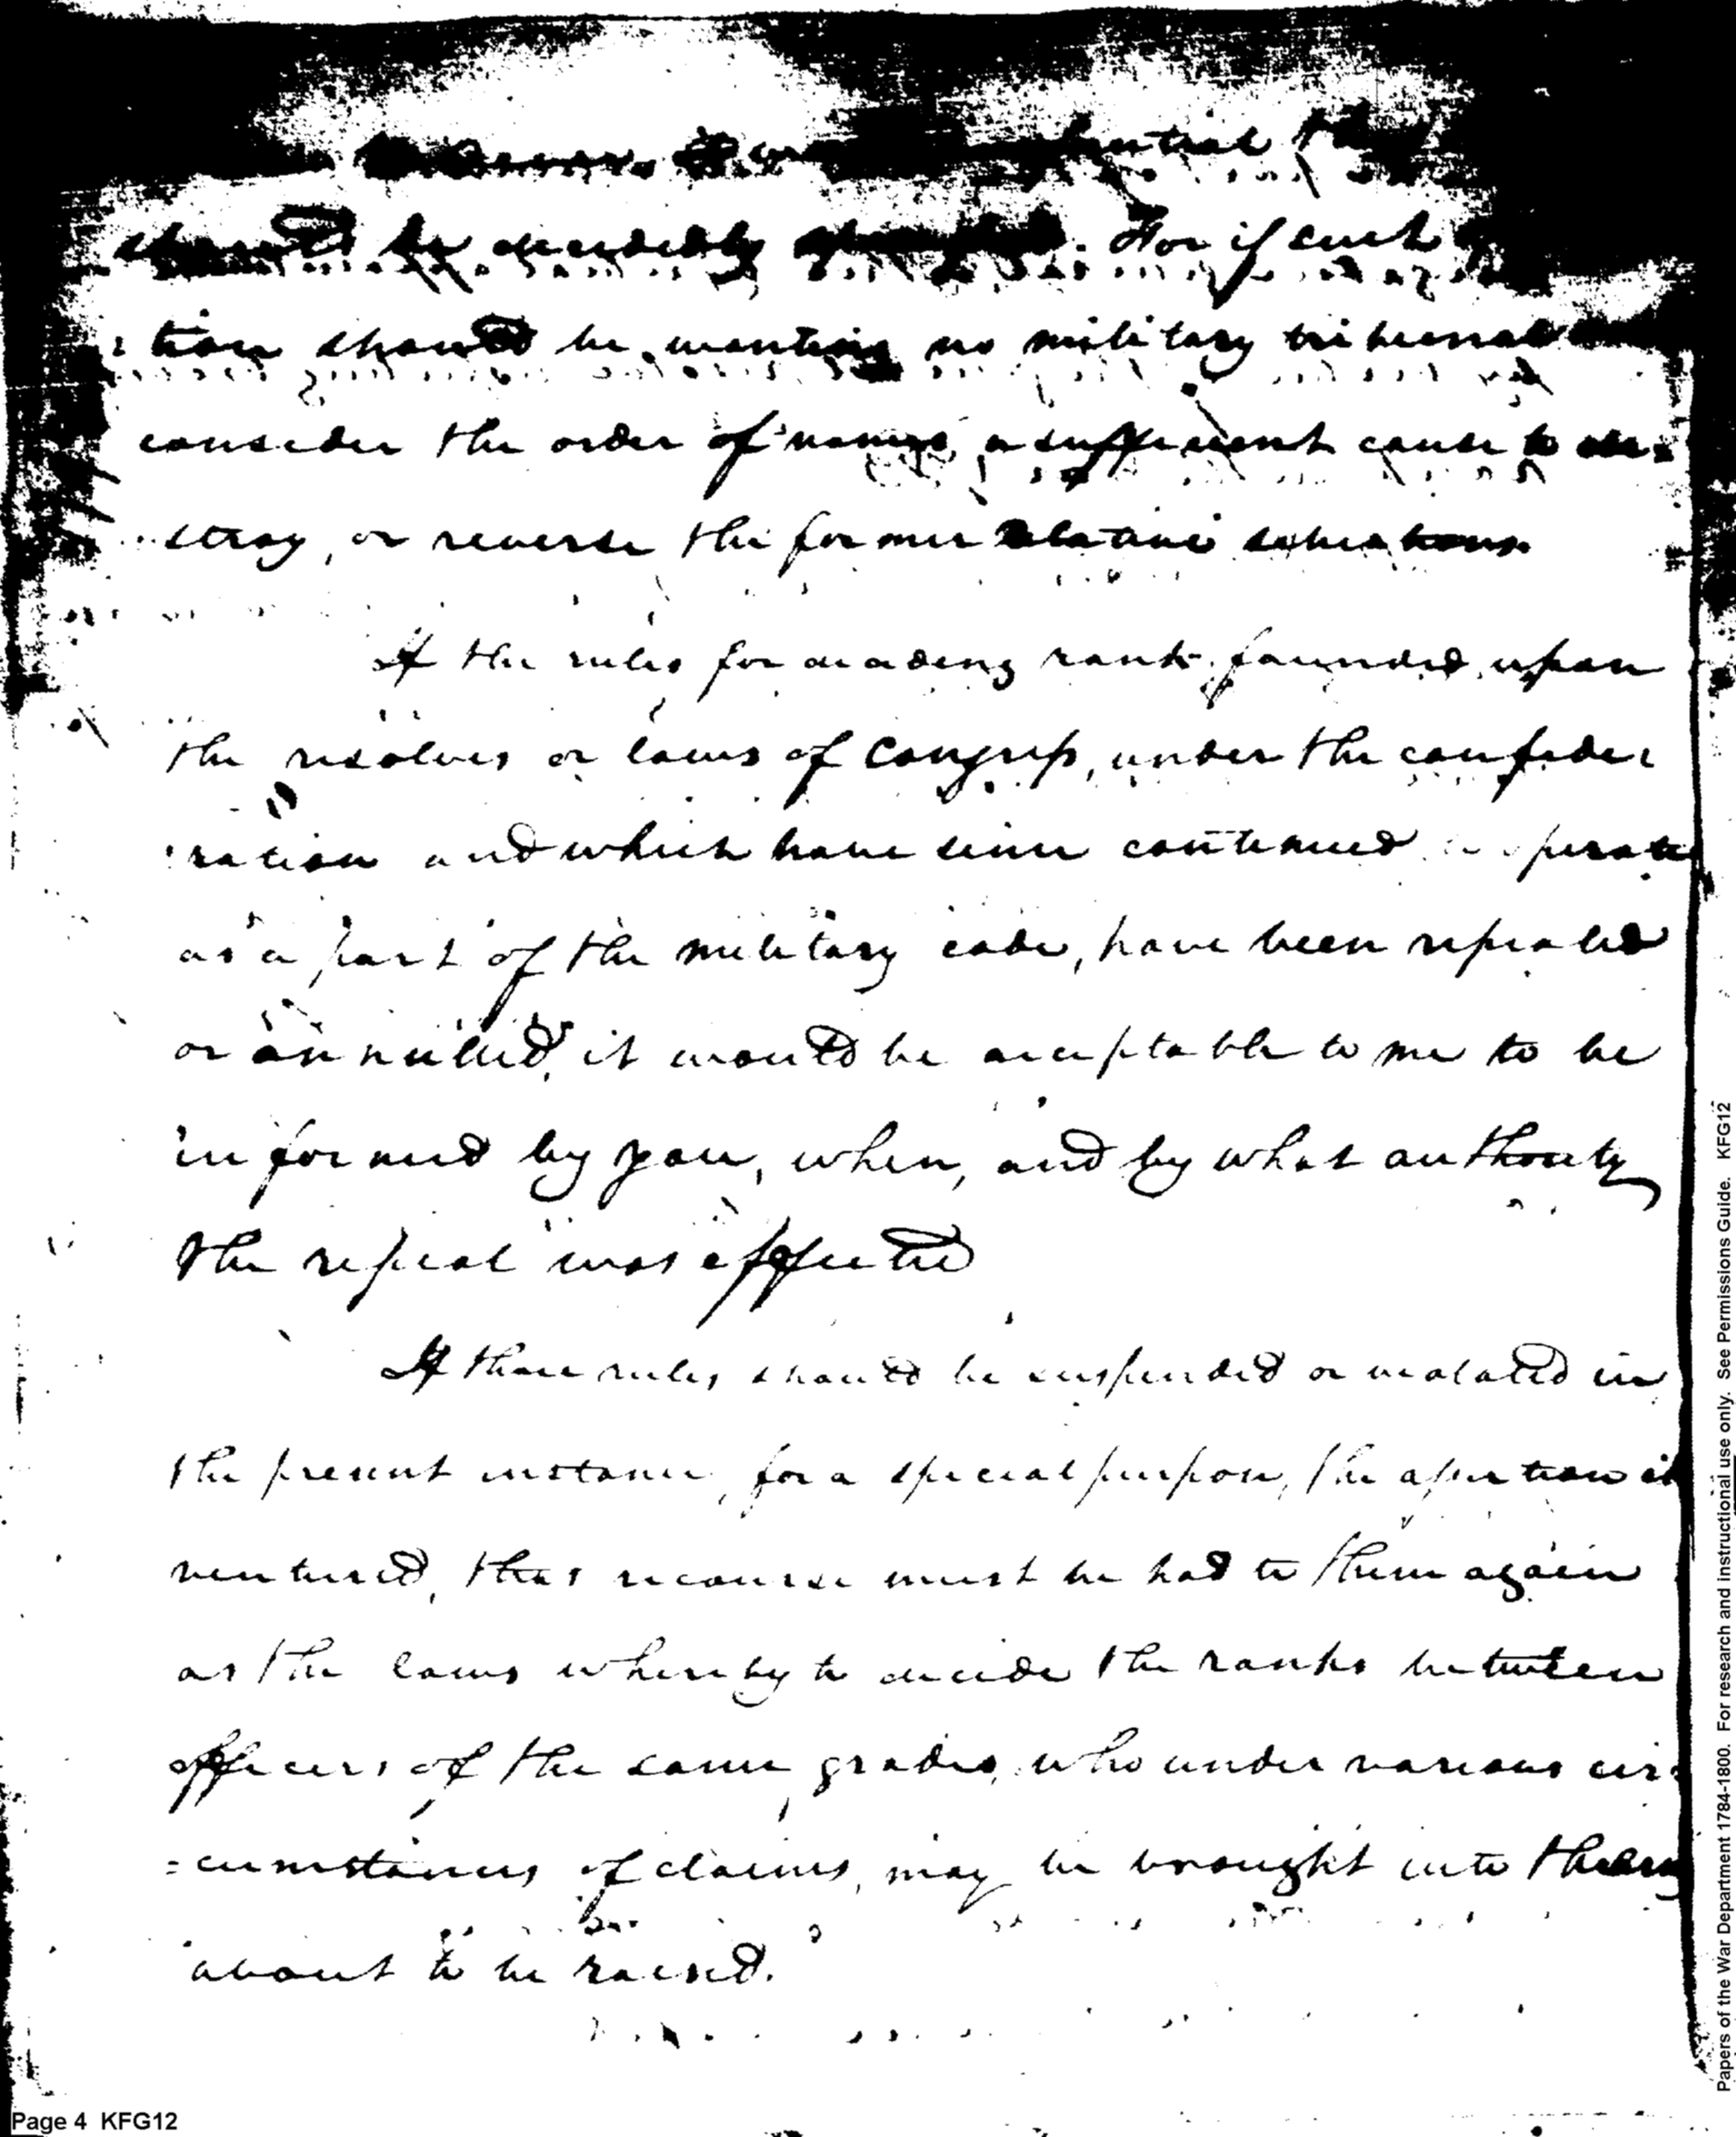 should be decidedly For if such
tion should be wanting no military tribunal
consider the order of names a sufficient cause to de=
stroy, or reverse the former relative situations
If the rules for deciding rank, founded upon
the resolves or laws of Congress, under the confede:
:ration and which have since continued to operate
as a part of the military code, have been repealed
or annulled, it would be acceptable to me to be
informed by you, when, and by what authority
the repeal was effected
If those rules should be suspended or violated in
the present instance, for a special purpose, the assertion is
ventured, that recourse must be had to them again
as the laws whereby to decide the ranks between
officers of the same grades, who under various cir=
=cumstances of claims, may be brought into the army
about to be raised.
Page 4 KFG12
Papers of the War Department 1784-1800. For research and instructional use only. See Permissions Guide. KFG12